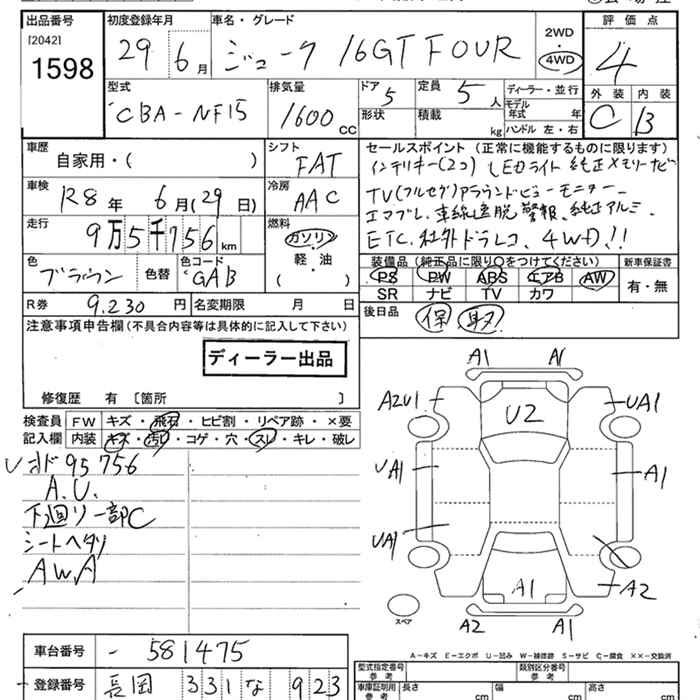 出品番号 初度登録年月 車名・グレード 2WD 評価点
[2042] 1598 29 年 6月 ジューク 16GT FOUR 4WD 4
型式 排気量 ドア 定員 ディーラー・並行 外装 内装
CBA-NF15 1600cc 5 5人 モデル年式 年 C B
形状 積載 kg ハンドル 左・右
車歴 シフト セールスポイント(正常に機能するものに限ります)
自家用・( ) FAT インテリキー(2コ) LEDライト 純正メモリーナビ
車検 冷房 TV(フルセグ)アラウンドビューモニター
R8年 6月(29日) AAC エマブレ.車線逸脱警報.純正アルミ.
走行 燃料 ETC.社外ドラレコ.4WD.!!
9万5千756km ガソリン
軽・油
( )
装備品(純正品に限り○をつけてください) 新車保証書
色 色替 色コード PS PW ABS エアB AW 有・無
ブラウン GAB SR ナビ TV カワ
R券 9.230円 名変期限 月 日 後日品 保 取
注意事項申告欄(不具合内容等は具体的に記入して下さい)
ディーラー出品
修復歴 有〔箇所 〕
検査員記入欄 FW キズ・飛石・ヒビ割・リペア跡・×要
内装 キズ・汚レ・コゲ・穴・スレ・キレ・破レ
95756
A.U.
下廻リ一部C
シートヘタリ
AW.A
A1 A1
A2U1 U2 UA1
UA1 A1
UA1
A1 A2
A2 A1
スペア
A-キズ E-エクボ U-凹み W-補修跡 S-サビ C-腐食 ××-交換済
車台番号 -581475
型式指定番号 参考 類別区分番号 参考
登録番号 長岡 331 な 923
車庫証明用 参考 長さ cm 幅 cm 高さ cm